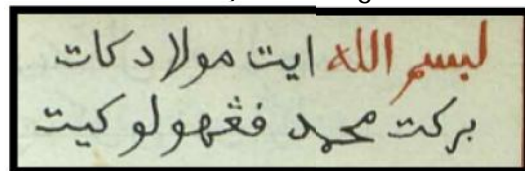 لبسم الله ايت مولا د كات
بركت محمد فڠهولو كيت